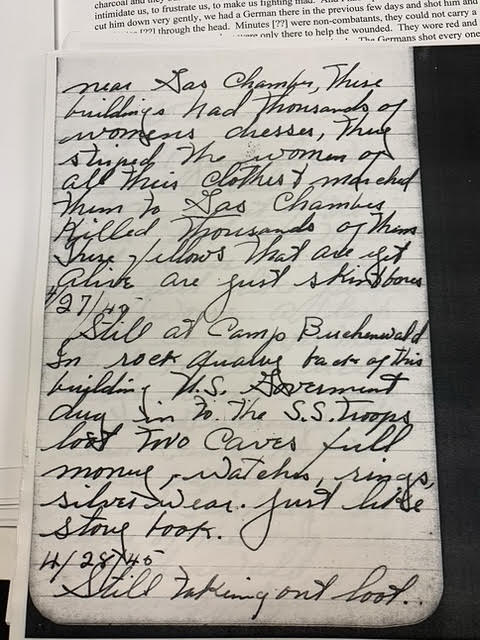 charcoal and they
intimidate us, to frustrate us, to make us fighting mad. And
cut him down very gently, we had a German there in the previous few days and shot him and
[??] through the head. Minutes [??] were non-combatants, they could not carry a
were only there to help the wounded. They wore red and
The Germans shot every one
near Gas Chamber, These
buildings had thousands of
womens dresses, they
striped the women of
all their clothes & marched
them to Gas Chamber
Killed thousands of them
These fellows that are yet
alive are just skin & bones
4/27/45
Still at Camp Buchenwald
In rock back of this
building U.S. Goverment
dug in to the S.S. Troops
loot Two Caves full
money, watches, rings,
silver wear. just like
story book.
4/28/45
Still taking out loot.